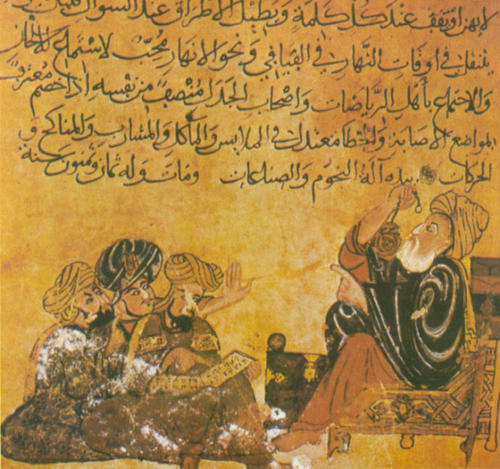 ويقف عند كل كلمة ويطيل الاطراق عند السوال
يتنقل في اوقات النهار في الفيافي ونحو الانهار محب لاستماع الالحان
والاجتماع باهل الرياضات واصحاب الجدل منصف من نفسه اذا خصم معترف
المواضع الاصابة والخطا معتدل في الملابس والمآكل والمشارب والمناكح و
الحركات بيده آلة النجوم والصناعات ومات وله ثمان سنة